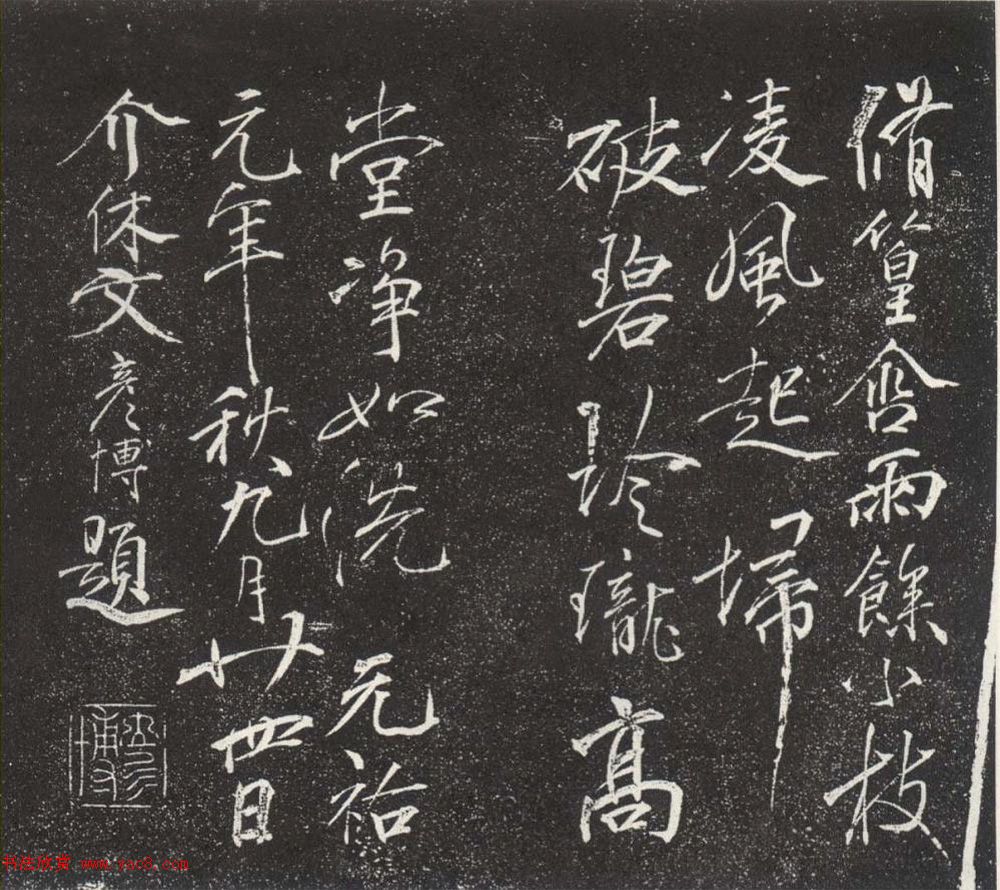 脩篁含雨餘小枝
凌風起掃
破碧玲瓏高
堂淨如洗 元祐
元年秋九月廿四日
介休文彥博題
彥博
书法欣赏 www.yac8.com